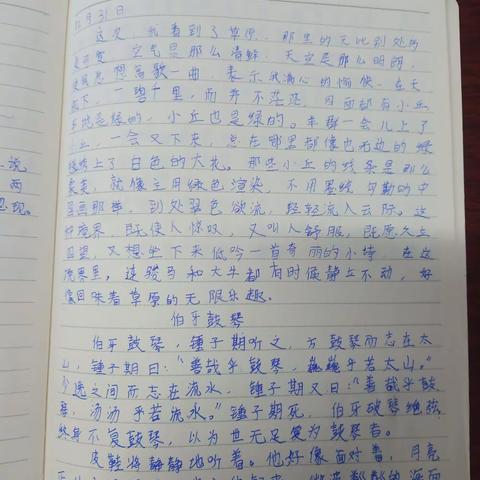 12月31日
这次，我看到了草原。那里的天比别处的
更可爱，空气是那么清鲜，天空是那么明朗，
使我总想高歌一曲，表示我满心的愉快。在天
底下，一碧千里，而并不茫茫。四面都有小丘，
平地是绿的，小丘也是绿的。羊群一会儿上了
小丘，一会又下来，走在哪里都像给无边的绿
毯绣上了白色的大花。那些小丘的线条是那么
柔美，就像只用绿色渲染，不用墨线勾勒的中
国画那样，到处翠色欲流，轻轻流入云际。这
种境界，既使人惊叹，又叫人舒服，既愿久立
四望，又想坐下来低吟一首奇丽的小诗。在这
境界里，连骏马和大牛都有时候静立不动，好
像回味着草原的无限乐趣。
伯牙鼓琴
伯牙鼓琴，锺子期听之。方鼓琴而志在太
山，锺子期曰：“善哉乎鼓琴，巍巍乎若太山。”
少选之间而志在流水，锺子期又曰：“善哉乎鼓
琴，汤汤乎若流水。”锺子期死，伯牙破琴绝弦，
终身不复鼓琴，以为世无足复为鼓琴者。
皮鞋匠静静地听着。他好像面对着，月亮
说
两
忽现。